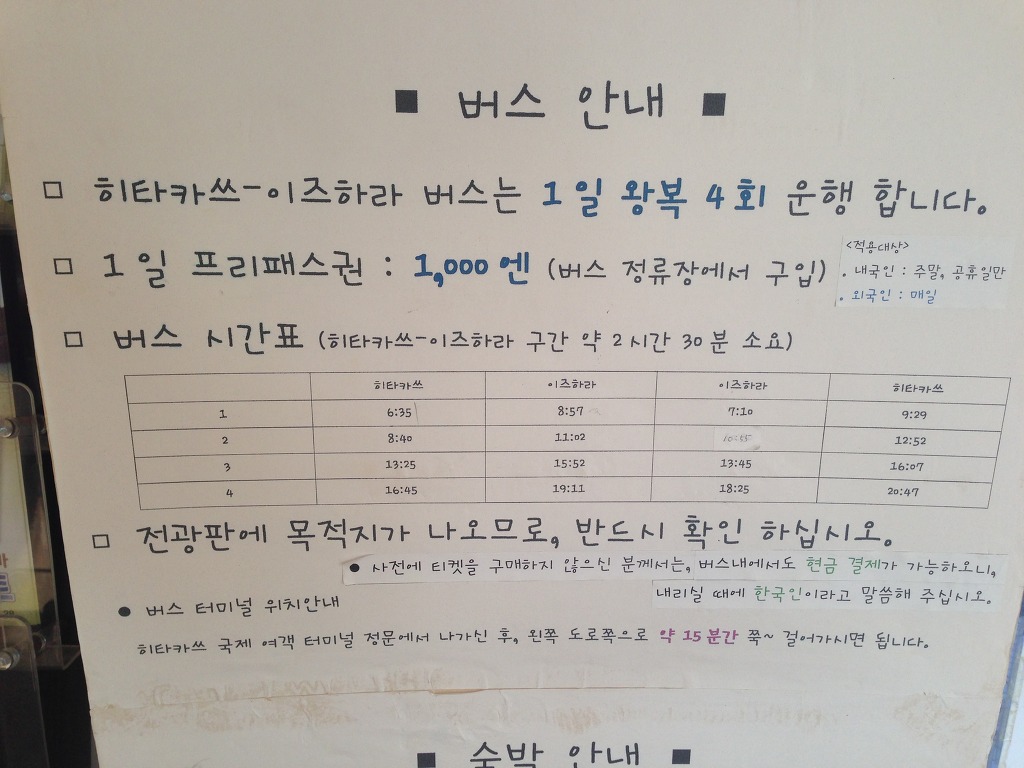 ■ 버스 안내 ■
□ 히타카쓰-이즈하라 버스는 1일 왕복 4회 운행 합니다.
□ 1일 프리패스권 : 1,000엔 (버스 정류장에서 구입)
<적용대상>
. 내국인 : 주말, 공휴일만
. 외국인 : 매일
□ 버스 시간표 (히타카쓰-이즈하라 구간 약 2시간 30분 소요)
히타카쓰 이즈하라 이즈하라 히타카쓰
1 6:35 8:57 7:10 9:29
2 8:40 11:02 10:45 12:52
3 13:25 15:52 13:45 16:07
4 16:45 19:11 18:25 20:47
□ 전광판에 목적지가 나오므로, 반드시 확인 하십시오.
● 사전에 티켓을 구매하지 않으신 분께서는, 버스내에서도 현금 결제가 가능하오니,
내리실 때에 한국인이라고 말씀해 주십시오.
● 버스 터미널 위치안내
히타카쓰 국제 여객 터미널 정문에서 나가신 후, 왼쪽 도로쪽으로 약 15분간 쭉~ 걸어가시면 됩니다.
■ 숙박 안내 ■